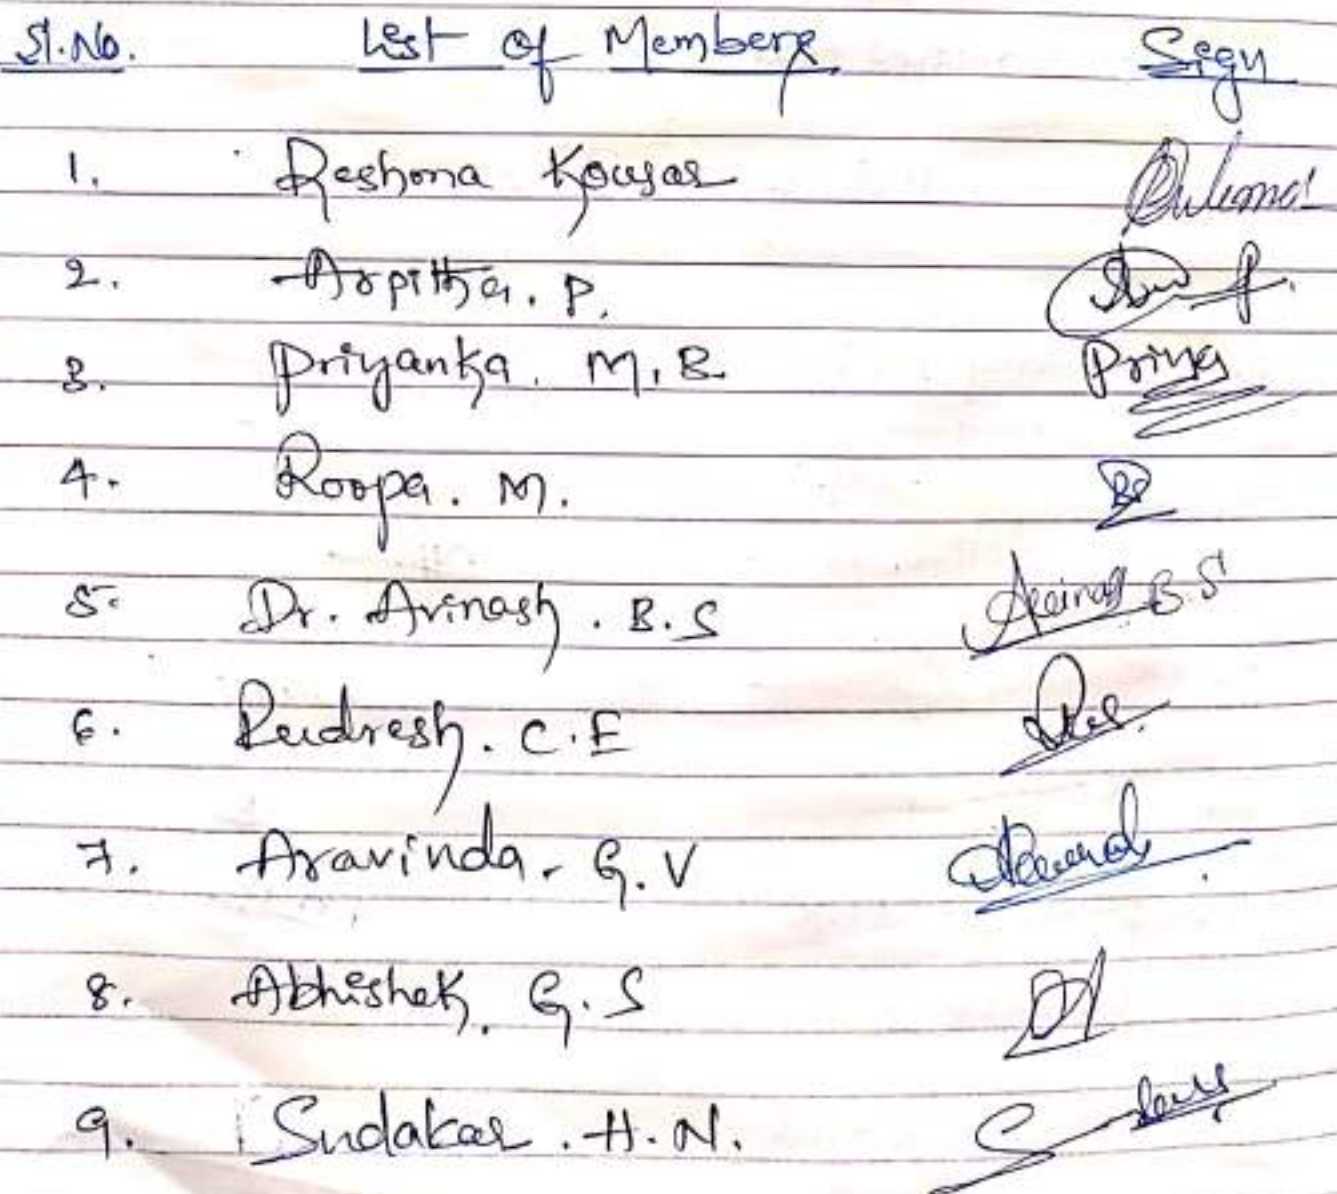 Sl.No. List of Members Sign
1. Reshma Kousar
2. Arpitha. P.
3. Priyanka. M.B. Priya
4. Roopa. M.
5. Dr. Avinash. B.S Avinash B.S
6. Rudresh. C.E
7. Aravinda. G.V
8. Abhishek. G.S
9. Sudakar. H.N.